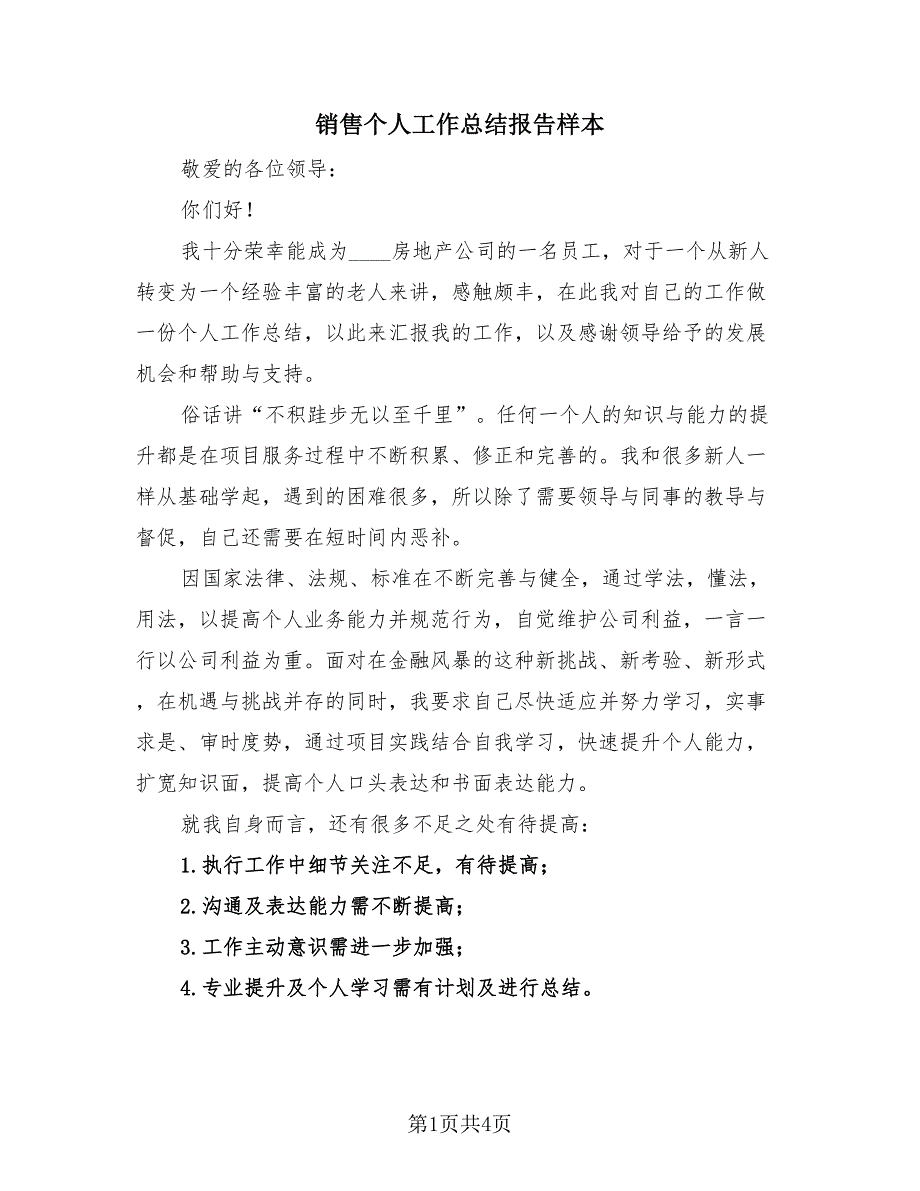 销售个人工作总结报告样本
敬爱的各位领导：
你们好！
我十分荣幸能成为____房地产公司的一名员工，对于一个从新人
转变为一个经验丰富的老人来讲，感触颇丰，在此我对自己的工作做
一份个人工作总结，以此来汇报我的工作，以及感谢领导给予的发展
机会和帮助与支持。
俗话讲“不积跬步无以至千里”。任何一个人的知识与能力的提
升都是在项目服务过程中不断积累、修正和完善的。我和很多新人一
样从基础学起，遇到的困难很多，所以除了需要领导与同事的教导与
督促，自己还需要在短时间内恶补。
因国家法律、法规、标准在不断完善与健全，通过学法，懂法，
用法，以提高个人业务能力并规范行为，自觉维护公司利益，一言一
行以公司利益为重。面对在金融风暴的这种新挑战、新考验、新形式
，在机遇与挑战并存的同时，我要求自己尽快适应并努力学习，实事
求是、审时度势，通过项目实践结合自我学习，快速提升个人能力，
扩宽知识面，提高个人口头表达和书面表达能力。
就我自身而言，还有很多不足之处有待提高：
1.执行工作中细节关注不足，有待提高；
2.沟通及表达能力需不断提高；
3.工作主动意识需进一步加强；
4.专业提升及个人学习需有计划及进行总结。
第1页共4页